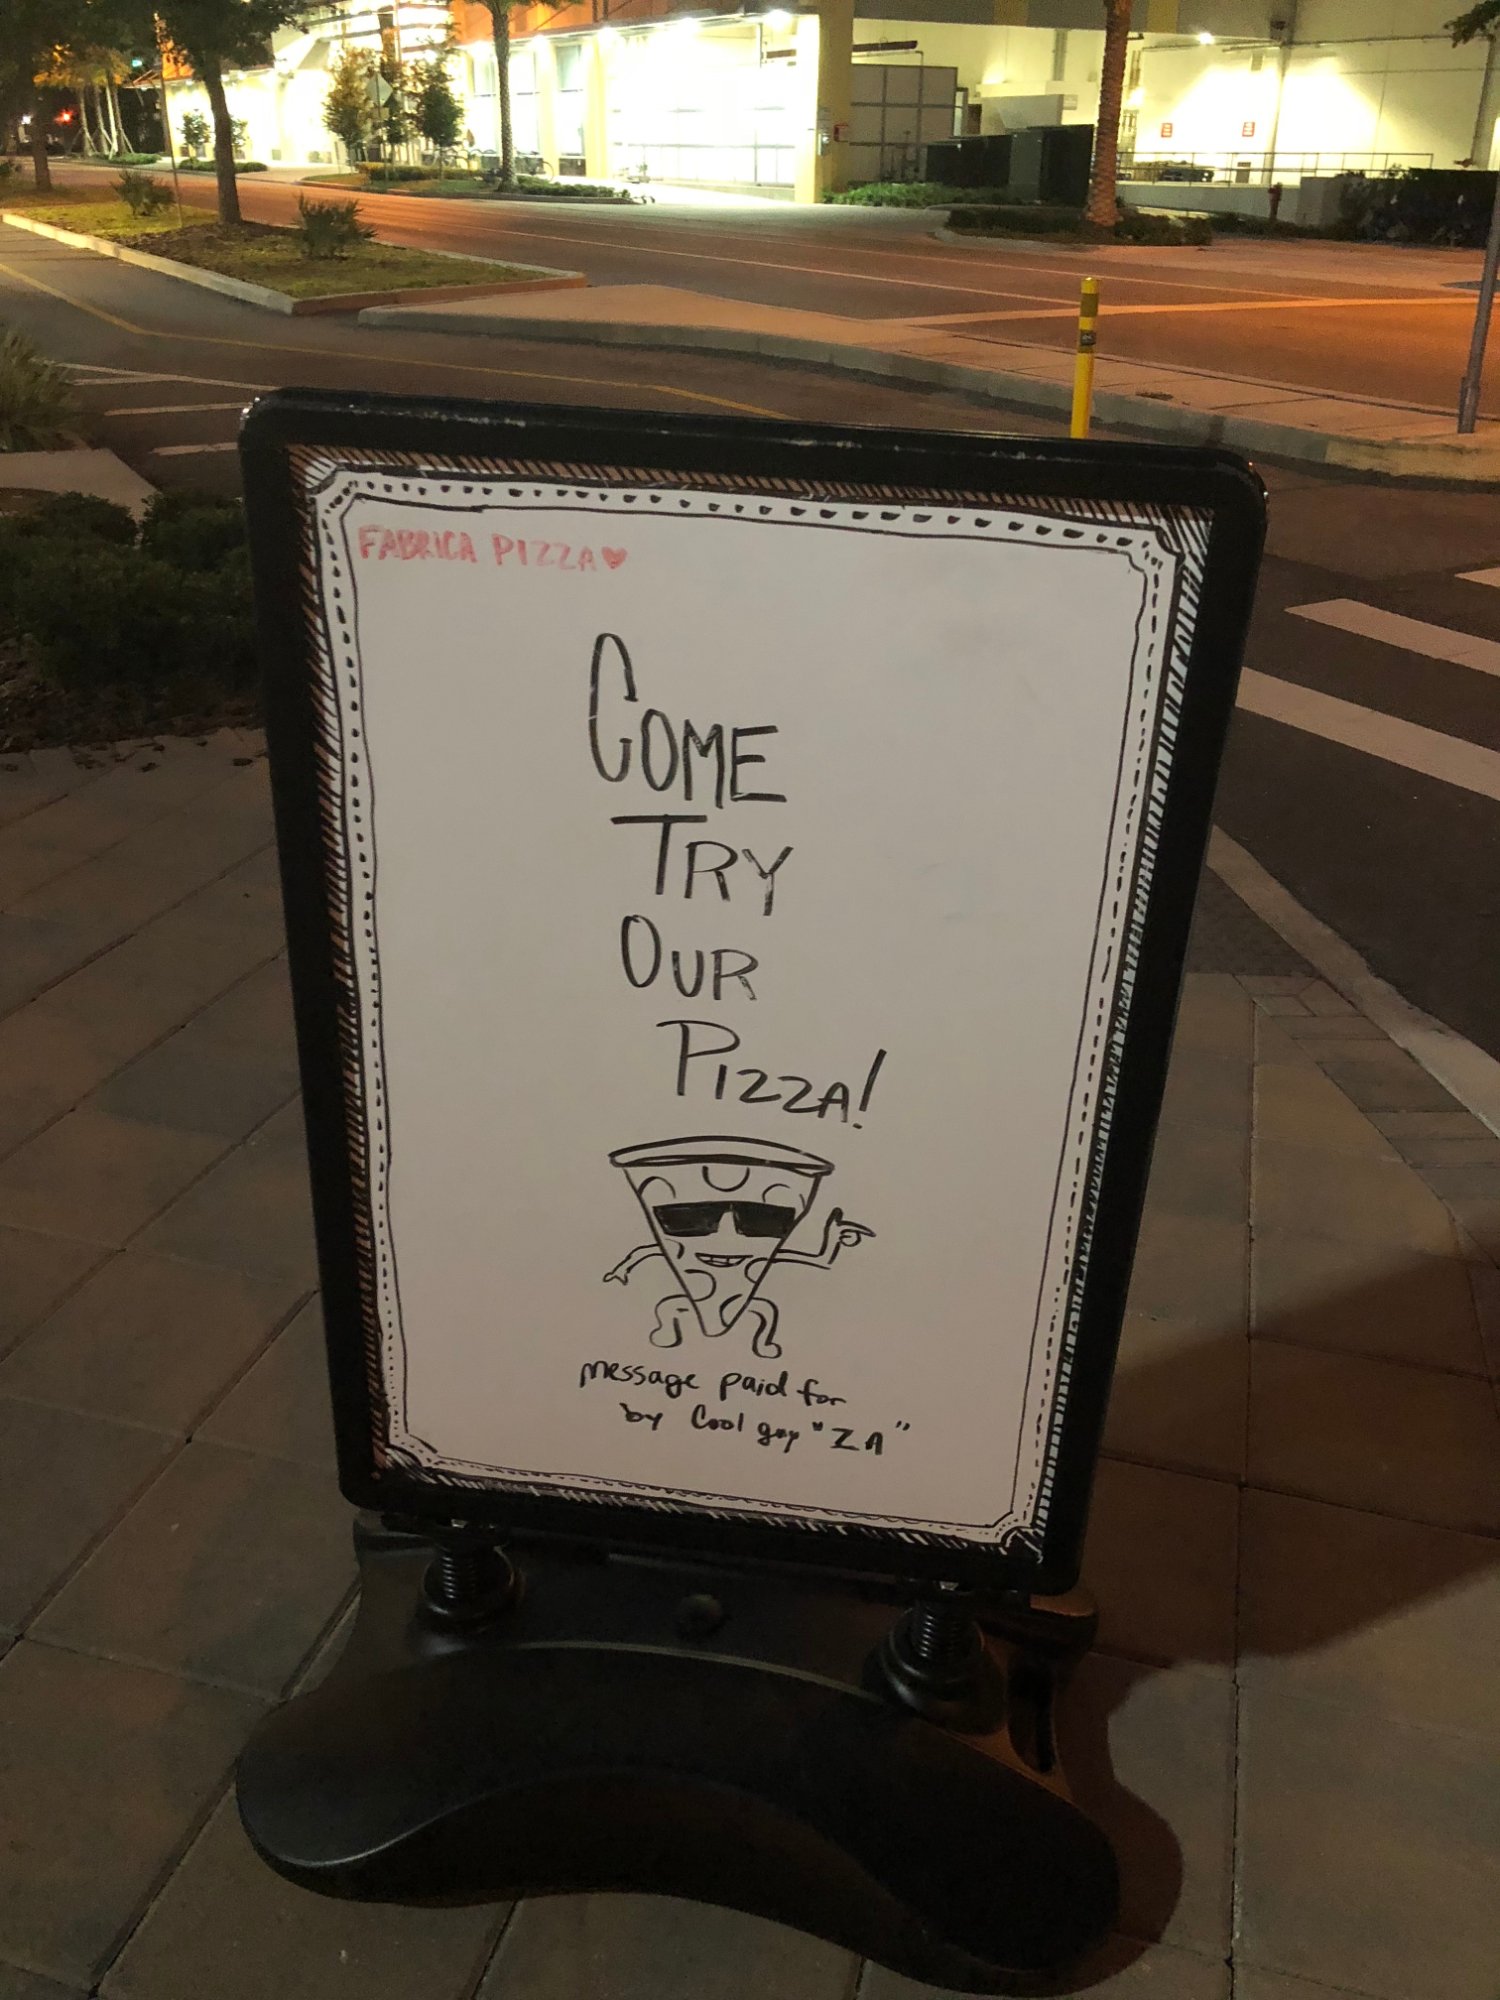 FABRICA PIZZA♥
COME
TRY
OUR
PIZZA!
message paid for
by Cool guy "ZA"